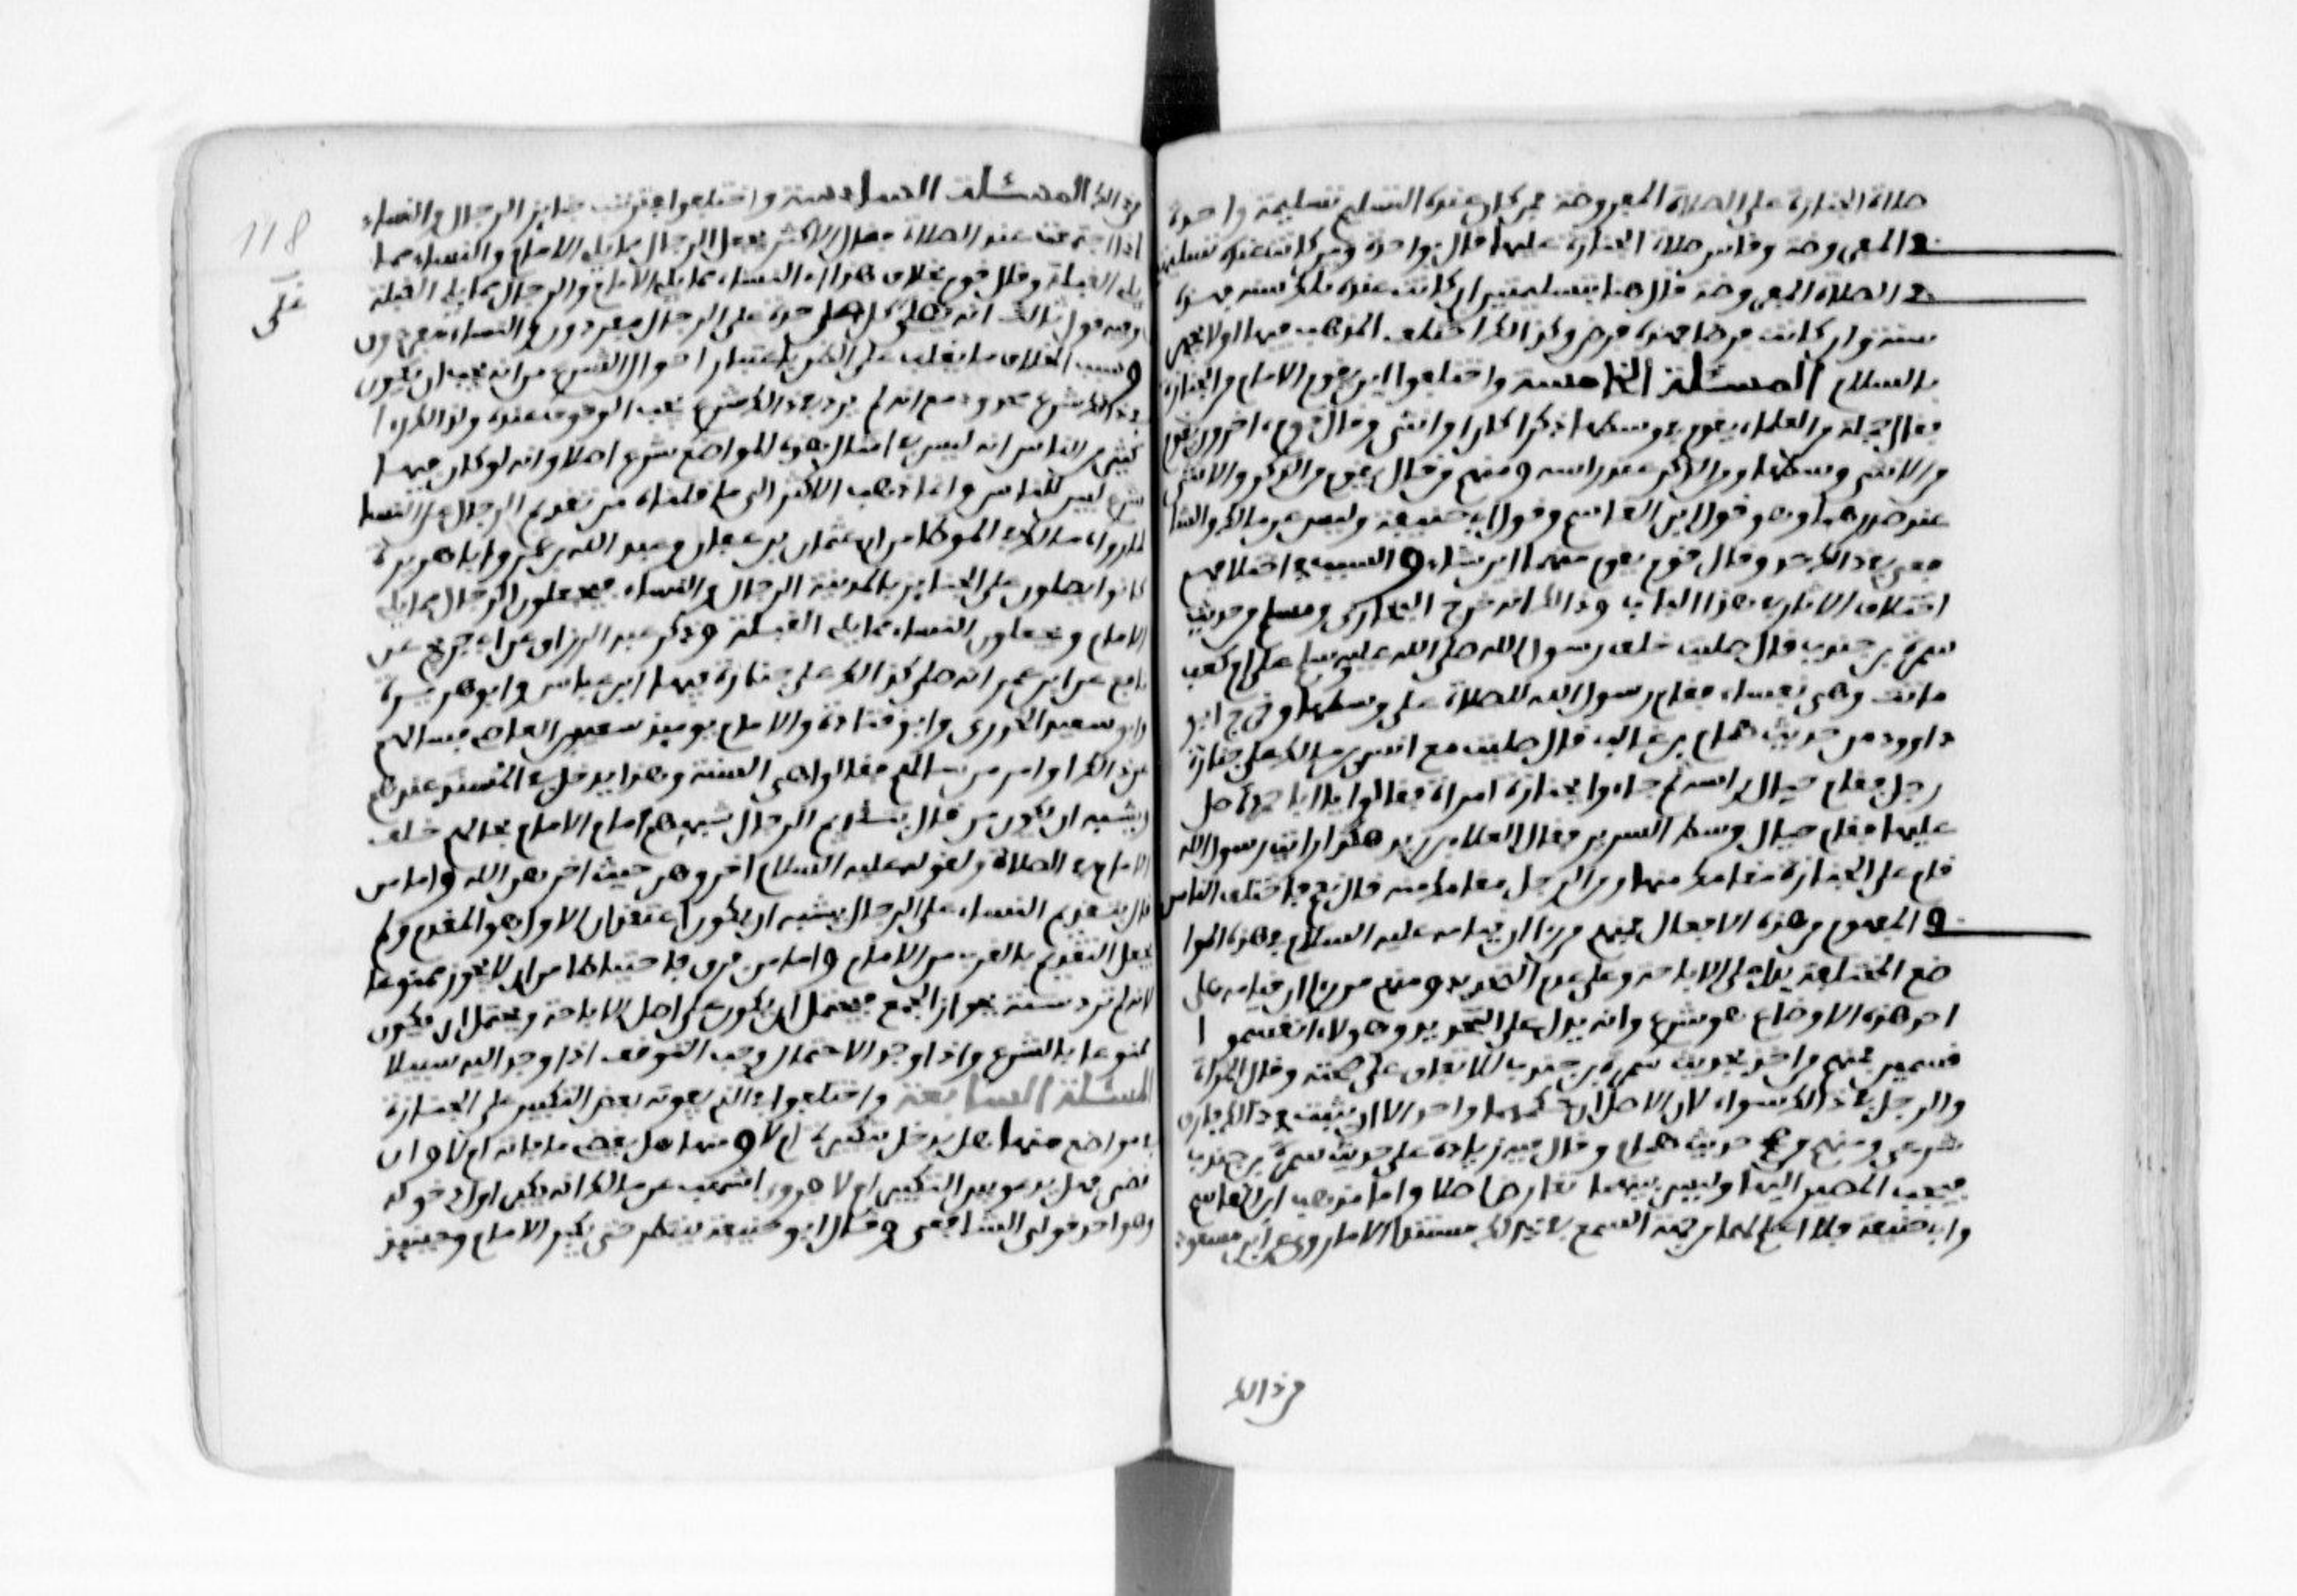 صلاة الجنازة على الصلاة المفروضة فمن كان عنده التسليم تسليمة واحدة
في المفروضة وقاس صلاة الجنازة عليها قال بواحدة ومن كانت عنده تسليمتين
في الصلاة المفروضة قال هنا بتسليمتين ان كانت عنده تلك سنة فهذه
سنة وان كانت فرضا فهذه فرض وكذالك اختلف المذهب فيها اولا يجهر
بالسلام المسئلة الخامسة واختلفوا اين يقوم الامام من الجنازة
فقال جملة من العلماء يقوم في وسطها ذكرا كان او انثى وقال قوم اخرون يقوم
من الانثى وسطها ومن الذكر عند راسه ومنهم من قال يقوم من الذكر والانثى
عند صدرهما وهو قول ابن القاسم وقول ابي حنيفة وليس عند مالك والشا
فعي في ذالك حد وقال قوم يقوم منهما اين شاء والسبب في اختلافهم
اختلاف الاثار في هذا الباب وذالك انه خرج البخاري ومسلم من حديث
سمرة بن جندب قال صليت خلف رسول الله صلى الله عليه وسلم على ام كعب
ماتت وهي نفساء فقام رسول الله للصلاة على وسطها وخرج ابو
داوود من حديث همام بن غالب قال صليت مع انس بن مالك على جنازة
رجل فقام حيال راسه ثم جاءوا بجنازة امراة فقالوا يا ابا حمزة صل
عليها فقام حيال وسط السرير فقال العلاء بن زيد هكذا رايت رسول الله
قام على الجنازة مقامك منها ومن الرجل مقامك منه قال نعم فاختلف الناس
في المفهوم من هذه الافعال فمنهم من را ان قيامه عليه السلام في هذه الموا
ضع المختلفة يدل على الاباحة وعلى عدم التحديد ومنهم من را ان قيامه على
احد هذه الاوضاع هو شرع وانه يدل على التحديد وهولاء انقسموا
قسمين فمنهم من اخذ بحديث سمرة بن جندب للاتفاق على صحته وقال المراة
والرجل في ذالك سواء لان الاصل ان حكمهما واحد الا ان يثبت في ذالك فارق
شرعي ومنهم من صحح حديث همام وقال فيه زيادة على حديث سمرة بن جندب
فيجب المصير اليها وليس بينهما تعارض اصلا واما مذهب ابن القاسم
وابي حنيفة فلا اعلم لهما من جهة السمع في ذالك مستندا الا ما روي عن ابن مسعود
من ذالك
من ذالك المسئلة السادسة واختلفوا في ترتيب جنايز الرجال والنساء
اذا اجتمعت عند الصلاة فقال الاكثر يجعل الرجال مما يلي الامام والنساء مما
يلي القبلة وقال قوم بخلاف هذا اي النساء مما يلي الامام والرجال مما يلي القبلة
وفيه قول ثالث انه يصلي كل على حدة على الرجال مفردون والنساء مفردون
وسبب الخلاف ما يغلب على الظن باعتبار احوال الشرع من انه يجب ان يكون
في ذالك شرع محدود مع انه لم يرد في ذالك شرع يجب الوقوف عنده ولذالك را
كثير من الناس انه ليس في امثال هذه المواضع شرع اصلا وانه لو كان فيها
شرع لبين للناس وانما ذهب الاكثر الى ما قلناه من تقديم الرجال على النساء
لما رواه مالك في الموطا من ان عثمان بن عفان وعبد الله بن عمر وابا هريرة
كانوا يصلون على الجنايز بالمدينة الرجال والنساء فيجعلون الرجال مما يلي
الامام ويجعلون النساء مما يلي القبلة وذكر عبد الرزاق عن ابن جريج عن
نافع عن ابن عمر انه صلى كذالك على جنازة فيها ابن عباس وابو هريرة
وابو سعيد الخدري وابو قتادة والامام يوميذ سعيد بن العاص فسالهم
عن ذالك او امر من سالهم فقالوا هي السنة وهذا يدخل في المسند عندهم
ويشبه ان يكون من قال بتقديم الرجال شبههم امام الامام بحالهم خلف
الامام في الصلاة ولقوله عليه السلام اخروهن حيث اخرهن الله واما من
قال بتقديم النساء على الرجال يشبه ان يكون اعتقد ان الاول هو المقدم ولم
يجعل التقديم بالقرب من الامام واما من فرق فاحتياطا من ان لا يجوز ممنوعا
لانه لم ترد سنة بجواز الجمع فيحتمل ان يكون على اصل الاباحة ويحتمل ان يكون
ممنوعا بالشرع واذا وجد الاحتمال وجب التوقف اذا وجد اليه سبيلا
المسئلة السابعة واختلفوا في الذي يفوته بعض التكبير على الجنازة
في مواضع منها هل يدخل بتكبير ام لا ومنها هل يقضي ما فاته ام لا وان
قضى هل يدعو بين التكبير ام لا فروى اشهب عن مالك انه يكبر اول دخوله
وهو احد قولي الشافعي وقال ابو حنيفة ينتظر حتى يكبر الامام وحينيذ
118